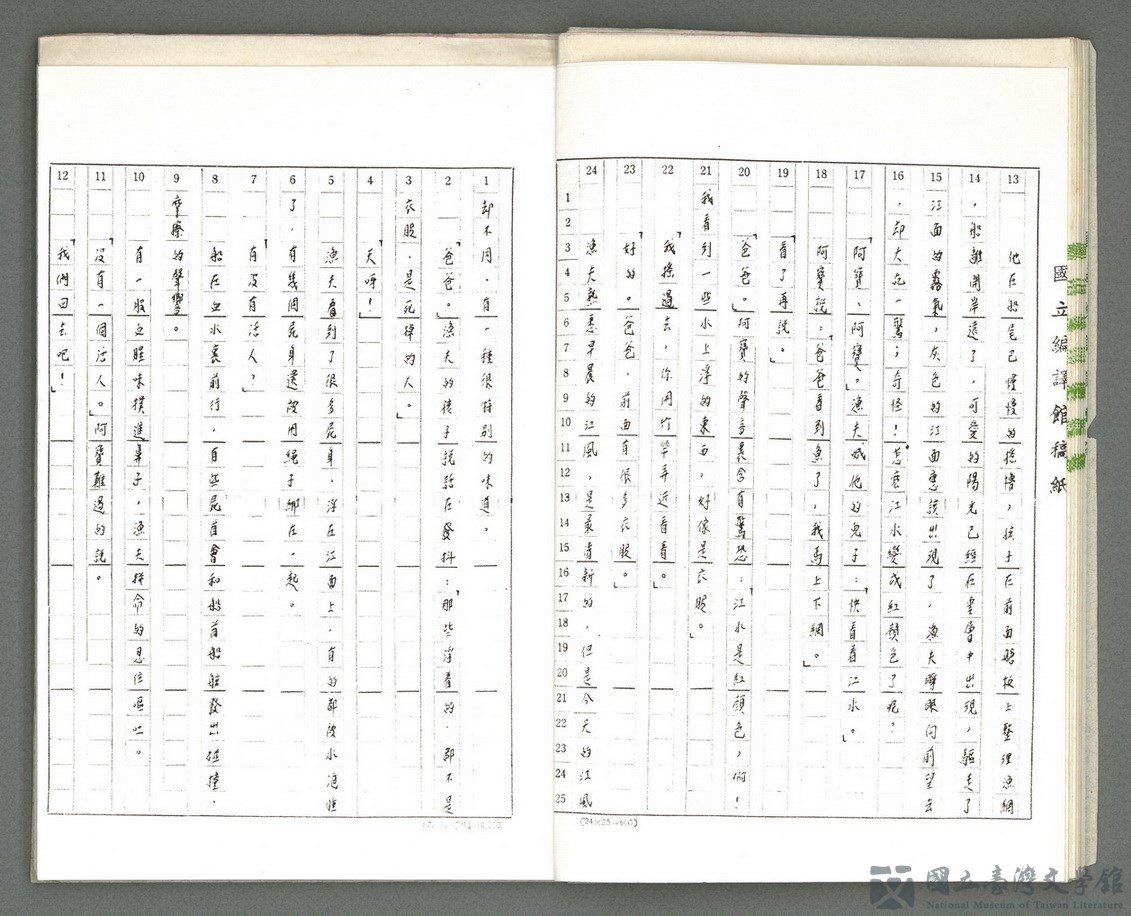 國立編譯館稿紙
13
他在船尾已慢慢的搖櫓，孩子在前面艙板上整理漁網
14
，船離開岸遠了，可愛的陽光已經在雲層中出現，驅走了
15
江面的霧氣，灰色的江面應該出現了，漁夫睜眼向前望去
16
，却大吃一驚；奇怪！怎麼江水變成紅顏色了呢？
17
「阿寶、阿寶。」漁夫喊他的兒子：「快看看江水。」
18
阿寶說：「爸爸看到魚了，我馬上下網。」
19
「看了再說。」
20
「爸爸。」阿寶的聲音裏含有驚恐：「江水是紅顏色，啊！
21
我看到一些水上浮的東西，好像是衣服。」
22
「我搖過去，你用竹竿弄近看看。」
23
「好的。爸爸，前面有很多衣服。」
24
漁夫熟悉早晨的江風，是最清新的，但是今天的江風
1
2
3
4
5
6
7
8
9
10
11
12
13
14
15
16
17
18
19
20
21
22
23
24
25
(24×25=600)
1
却不同，有一種很特別的味道。
2
「爸爸。」漁夫的孩子說話在發抖：「那些浮着的，都不是
3
衣服，是死掉的人。」
4
「天呀！」
5
漁夫看到了很多屍身，浮在江面上，有的都被水泡腫
6
了，有幾個屍身還被用繩子綁在一起。
7
「有沒有活人？」
8
船在血水裏前行，有些屍首會和船首船舷發出碰撞，
9
摩擦的聲響。
10
有一股血腥味撲進鼻子，漁夫拼命的忍住嘔吐。
11
「沒有一個活人。」阿寶難過的說。
12
「我們回去吧！」
國立臺灣文學館
National Museum of Taiwan Literature